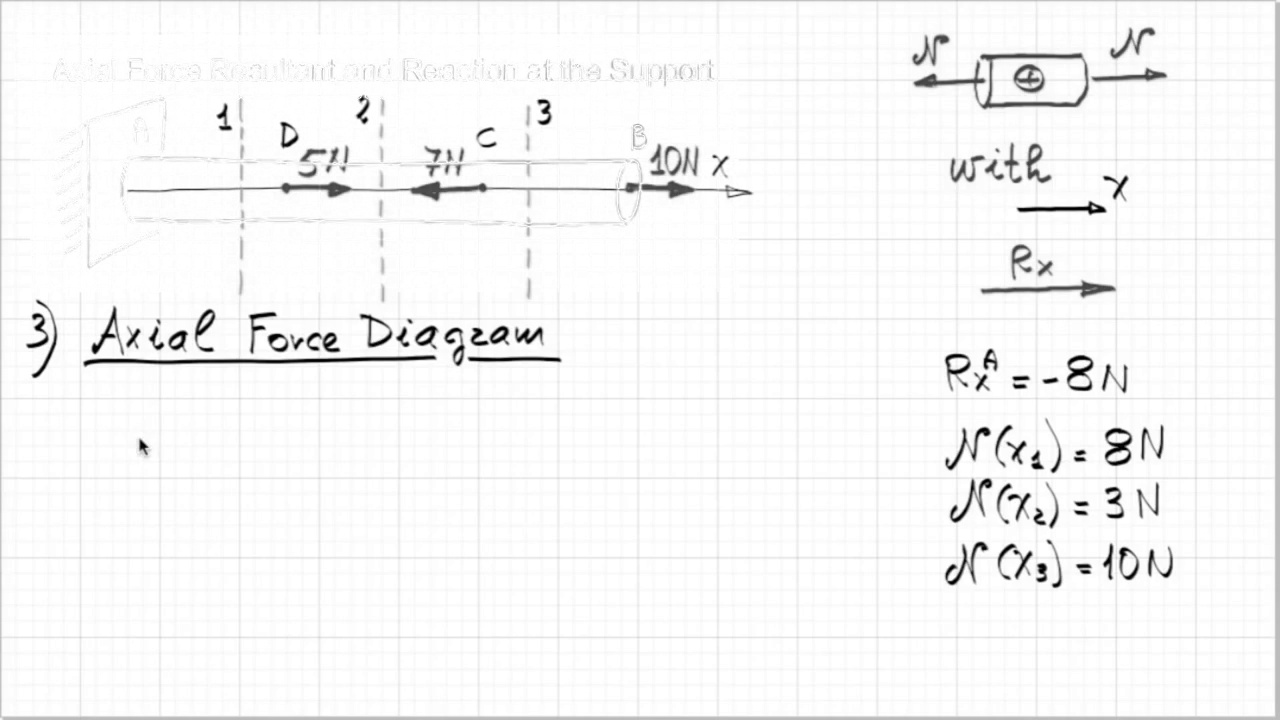 Axial Force Resultant and Reaction at the Support
A 1 D 5N 2 7N C 3 B 10N x
3) Axial Force Diagram
N + N
with
x
Rx
RxA = -8N
N(x1) = 8N
N(x2) = 3N
N(x3) = 10N